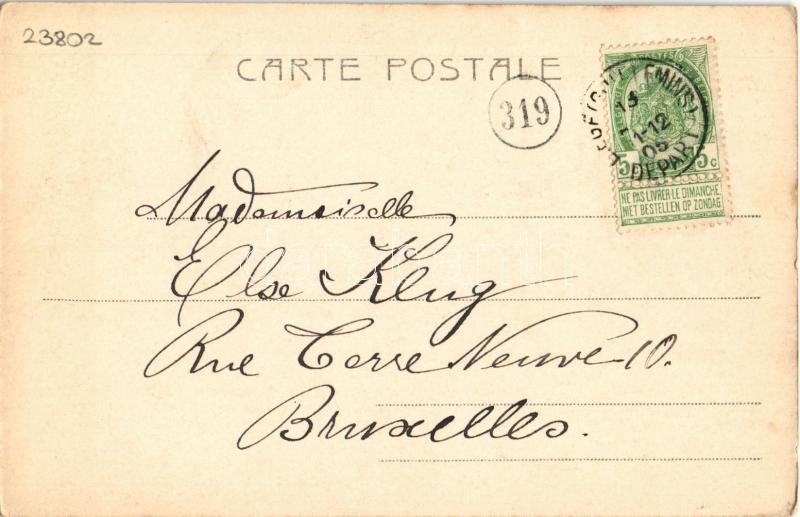 23802
CARTE POSTALE
319
DEPART
5 5c
NE PAS LIVRER LE DIMANCHE
NIET BESTELLEN OP ZONDAG
Mademoiselle
Else Klug
Rue Terre Neuve 10.
Bruxelles.